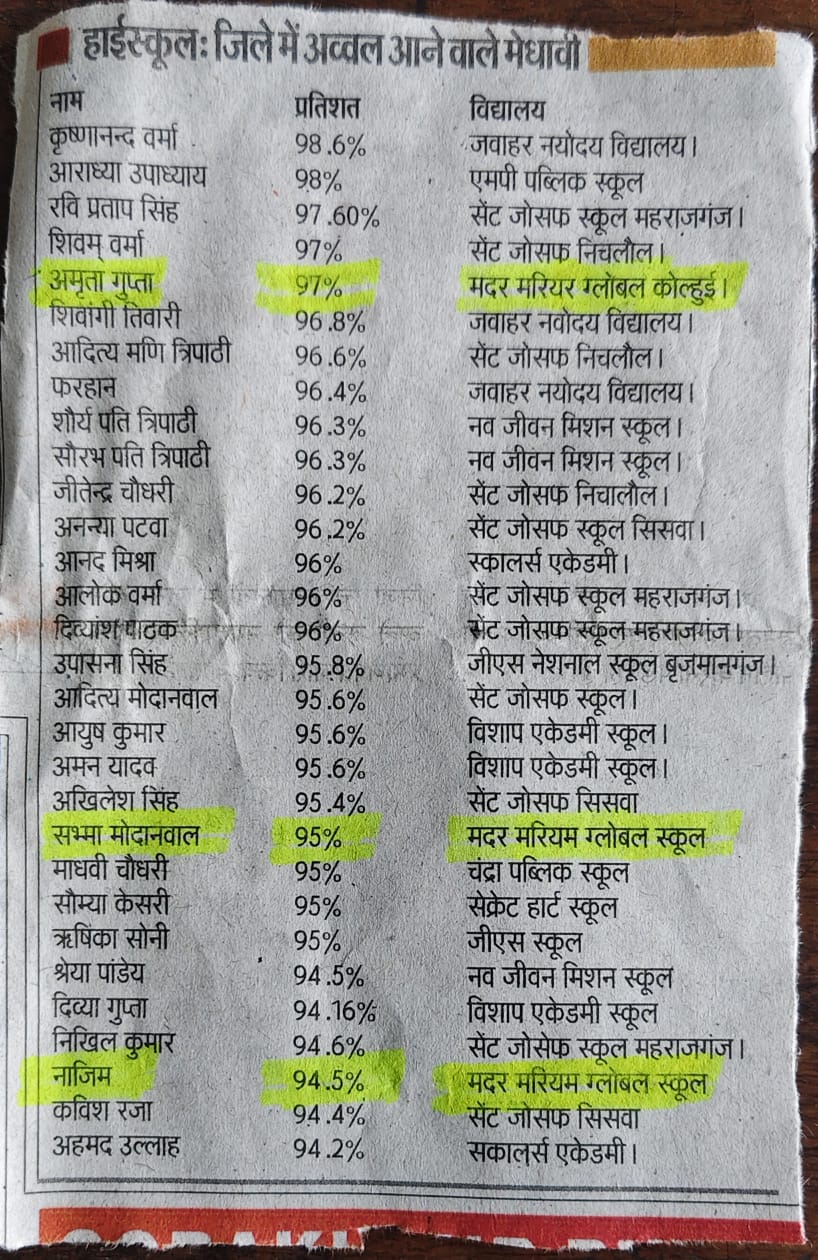 हाईस्कूल: जिले में अव्वल आने वाले मेधावी
नाम प्रतिशत विद्यालय
कृष्णानन्द वर्मा 98.6% जवाहर नयोदय विद्यालय।
आराध्या उपाध्याय 98% एमपी पब्लिक स्कूल
रवि प्रताप सिंह 97.60% सेंट जोसफ स्कूल महराजगंज।
शिवम् वर्मा 97% सेंट जोसफ निचलौल।
अमृता गुप्ता 97% मदर मरियर ग्लोबल कोल्हुई।
शिवांगी तिवारी 96.8% जवाहर नवोदय विद्यालय।
आदित्य मणि त्रिपाठी 96.6% सेंट जोसफ निचलौल।
फरहान 96.4% जवाहर नयोदय विद्यालय।
शौर्य पति त्रिपाठी 96.3% नव जीवन मिशन स्कूल।
सौरभ पति त्रिपाठी 96.3% नव जीवन मिशन स्कूल।
जीतेन्द्र चौधरी 96.2% सेंट जोसफ निचालौल।
अनन्या पटवा 96.2% सेंट जोसफ स्कूल सिसवा।
आनद मिश्रा 96% स्कालर्स एकेडमी।
आलोक वर्मा 96% सेंट जोसफ स्कूल महराजगंज।
दिव्यांश पाठक 96% सेंट जोसफ स्कूल महराजगंज।
उपासना सिंह 95.8% जीएस नेशनाल स्कूल बृजमानगंज।
आदित्य मोदानवाल 95.6% सेंट जोसफ स्कूल।
आयुष कुमार 95.6% विशाप एकेडमी स्कूल।
अमन यादव 95.6% विशाप एकेडमी स्कूल।
अखिलेश सिंह 95.4% सेंट जोसफ सिसवा
सभ्मा मोदानवाल 95% मदर मरियम ग्लोबल स्कूल
माधवी चौधरी 95% चंद्रा पब्लिक स्कूल
सौम्या केसरी 95% सेक्रेट हार्ट स्कूल
ऋषिंका सोनी 95% जीएस स्कूल
श्रेया पांडेय 94.5% नव जीवन मिशन स्कूल
दिव्या गुप्ता 94.16% विशाप एकेडमी स्कूल
निखिल कुमार 94.6% सेंट जोसेफ स्कूल महराजगंज।
नाजिम 94.5% मदर मरियम ग्लोबल स्कूल
कविश रजा 94.4% सेंट जोसफ सिसवा
अहमद उल्लाह 94.2% सकालर्स एकेडमी।